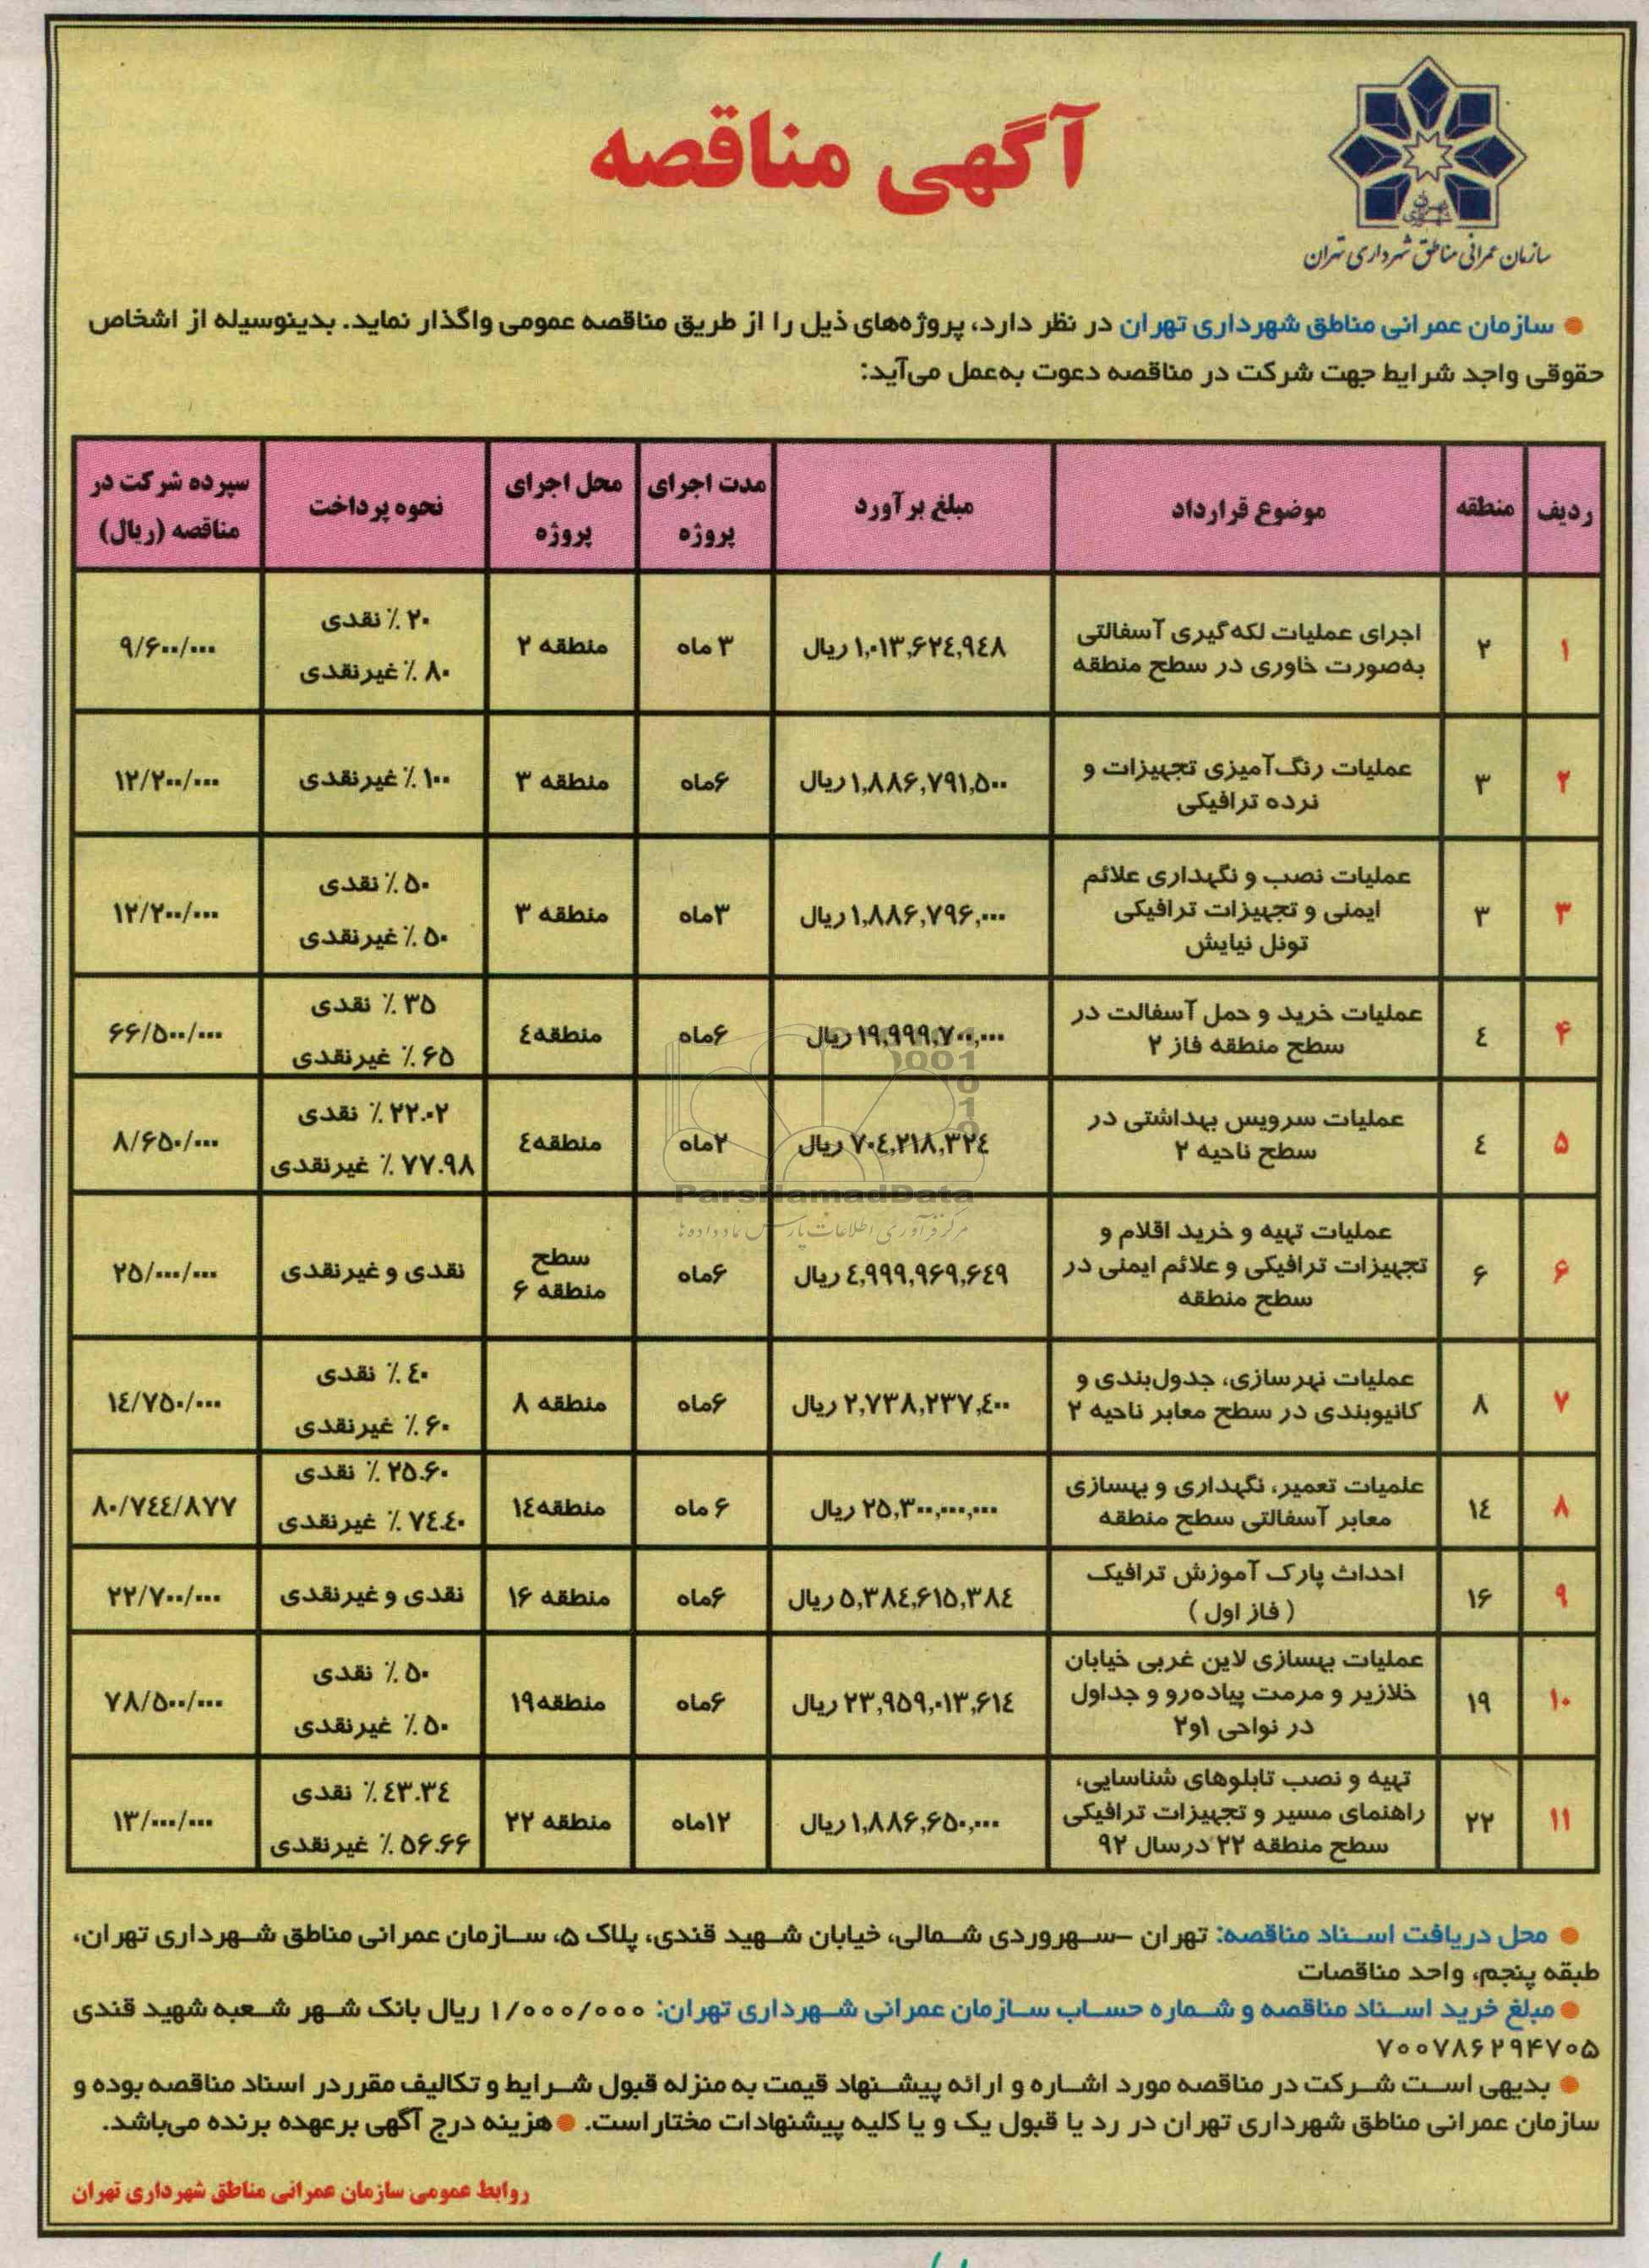 آگهی مناقصه
سازمان عمرانی مناطق شهرداری تهران
● سازمان عمرانی مناطق شهرداری تهران در نظر دارد، پروژه‌های ذیل را از طریق مناقصه عمومی واگذار نماید. بدینوسیله از اشخاص
حقوقی واجد شرایط جهت شرکت در مناقصه دعوت به‌عمل می‌آید:
ردیف منطقه موضوع قرارداد مبلغ برآورد مدت اجرای پروژه محل اجرای پروژه نحوه پرداخت سپرده شرکت در مناقصه (ریال)
۱ ۲ اجرای عملیات لکه‌گیری آسفالتی به‌صورت خاوری در سطح منطقه ۱,۰۱۳,۶۲۴,۹۴۸ ریال ۳ ماه منطقه ۲ ۲۰ ٪ نقدی ۸۰ ٪ غیرنقدی ۹/۶۰۰/۰۰۰
۲ ۳ عملیات رنگ‌آمیزی تجهیزات و نرده ترافیکی ۱,۸۸۶,۷۹۱,۵۰۰ ریال ۶ماه منطقه ۳ ۱۰۰ ٪ غیرنقدی ۱۲/۲۰۰/۰۰۰
۳ ۳ عملیات نصب و نگهداری علائم ایمنی و تجهیزات ترافیکی تونل نیایش ۱,۸۸۶,۷۹۶,۰۰۰ ریال ۳ماه منطقه ۳ ۵۰ ٪ نقدی ۵۰ ٪ غیرنقدی ۱۲/۲۰۰/۰۰۰
۴ ۴ عملیات خرید و حمل آسفالت در سطح منطقه فاز ۲ ۱۹,۹۹۹,۷۰۰,۰۰۰ ریال ۶ماه منطقه۴ ۳۵ ٪ نقدی ۶۵ ٪ غیرنقدی ۶۶/۵۰۰/۰۰۰
۵ ۴ عملیات سرویس بهداشتی در سطح ناحیه ۲ ۷۰۴,۲۱۸,۳۲۴ ریال ۲ماه منطقه۴ ۲۲.۰۲ ٪ نقدی ۷۷.۹۸ ٪ غیرنقدی ۸/۶۵۰/۰۰۰
۶ ۶ عملیات تهیه و خرید اقلام و تجهیزات ترافیکی و علائم ایمنی در سطح منطقه ۴,۹۹۹,۹۶۹,۶۴۹ ریال ۶ماه سطح منطقه ۶ نقدی و غیرنقدی ۲۵/۰۰۰/۰۰۰
۷ ۸ عملیات نهرسازی، جدول‌بندی و کانیوبندی در سطح معابر ناحیه ۲ ۲,۷۳۸,۲۳۷,۴۰۰ ریال ۶ماه منطقه ۸ ۴۰ ٪ نقدی ۶۰ ٪ غیرنقدی ۱۴/۷۵۰/۰۰۰
۸ ۱۴ علمیات تعمیر، نگهداری و بهسازی معابر آسفالتی سطح منطقه ۲۵,۳۰۰,۰۰۰,۰۰۰ ریال ۶ ماه منطقه۱۴ ۲۵.۶۰ ٪ نقدی ۷۴.۴۰ ٪ غیرنقدی ۸۰/۷۴۴/۸۷۷
۹ ۱۶ احداث پارک آموزش ترافیک ( فاز اول ) ۵,۳۸۴,۶۱۵,۳۸۴ ریال ۶ماه منطقه ۱۶ نقدی و غیرنقدی ۲۲/۷۰۰/۰۰۰
۱۰ ۱۹ عملیات بهسازی لاین غربی خیابان خلازیر و مرمت پیاده‌رو و جداول در نواحی ۱و۲ ۲۳,۹۵۹,۰۱۳,۶۱۴ ریال ۶ماه منطقه۱۹ ۵۰ ٪ نقدی ۵۰ ٪ غیرنقدی ۷۸/۵۰۰/۰۰۰
۱۱ ۲۲ تهیه و نصب تابلوهای شناسایی، راهنمای مسیر و تجهیزات ترافیکی سطح منطقه ۲۲ درسال ۹۲ ۱,۸۸۶,۶۵۰,۰۰۰ ریال ۱۲ماه منطقه ۲۲ ۴۳.۳۴ ٪ نقدی ۵۶.۶۶ ٪ غیرنقدی ۱۳/۰۰۰/۰۰۰
ParsNamadData
● محل دریافت اسناد مناقصه: تهران –سهروردی شمالی، خیابان شهید قندی، پلاک ۵، سازمان عمرانی مناطق شهرداری تهران،
طبقه پنجم، واحد مناقصات
● مبلغ خرید اسناد مناقصه و شماره حساب سازمان عمرانی شهرداری تهران: ۱/۰۰۰/۰۰۰ ریال بانک شهر شعبه شهید قندی
۷۰۰۷۸۶۲۹۴۷۰۵
● بدیهی است شرکت در مناقصه مورد اشاره و ارائه پیشنهاد قیمت به منزله قبول شرایط و تکالیف مقرردر اسناد مناقصه بوده و
سازمان عمرانی مناطق شهرداری تهران در رد یا قبول یک و یا کلیه پیشنهادات مختار است. ● هزینه درج آگهی برعهده برنده می‌باشد.
روابط عمومی سازمان عمرانی مناطق شهرداری تهران